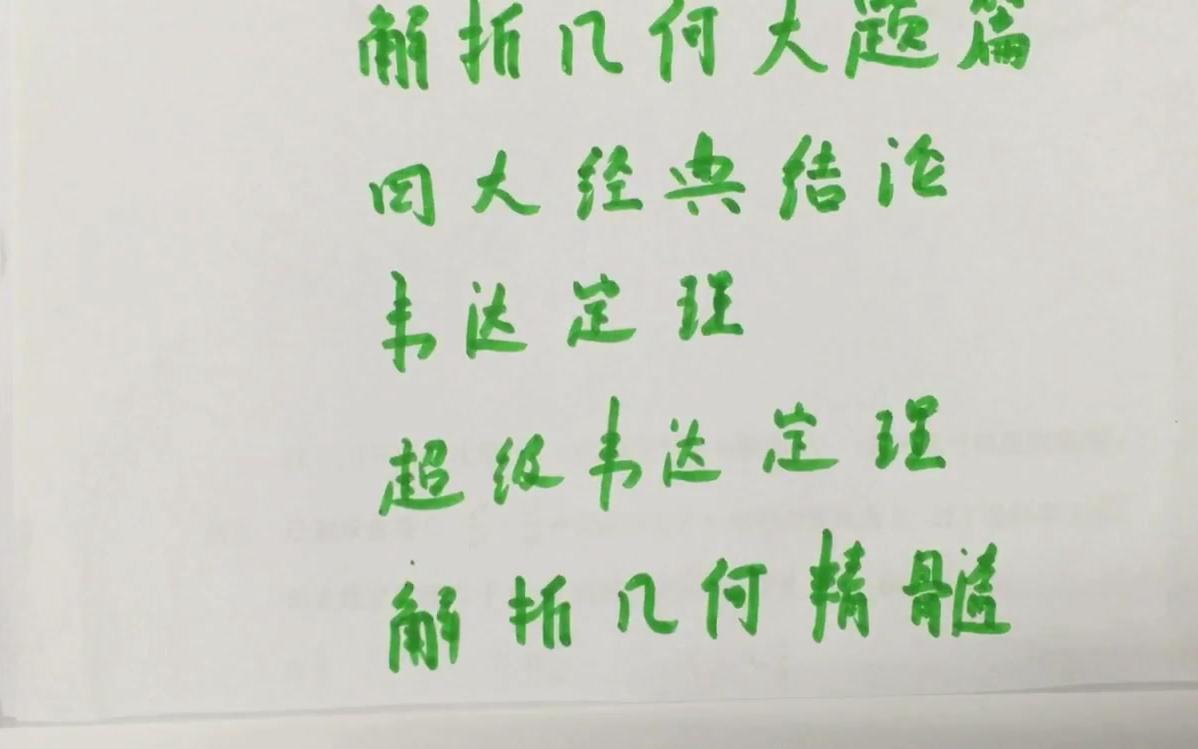 解析几何大题篇
四大经典结论
韦达定理
超级韦达定理
解析几何精髓